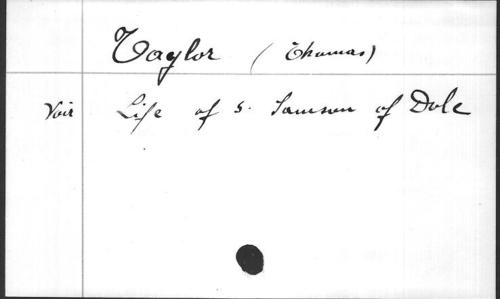 Taylor (Thomas)
Voir Life of S. Samson of Dole